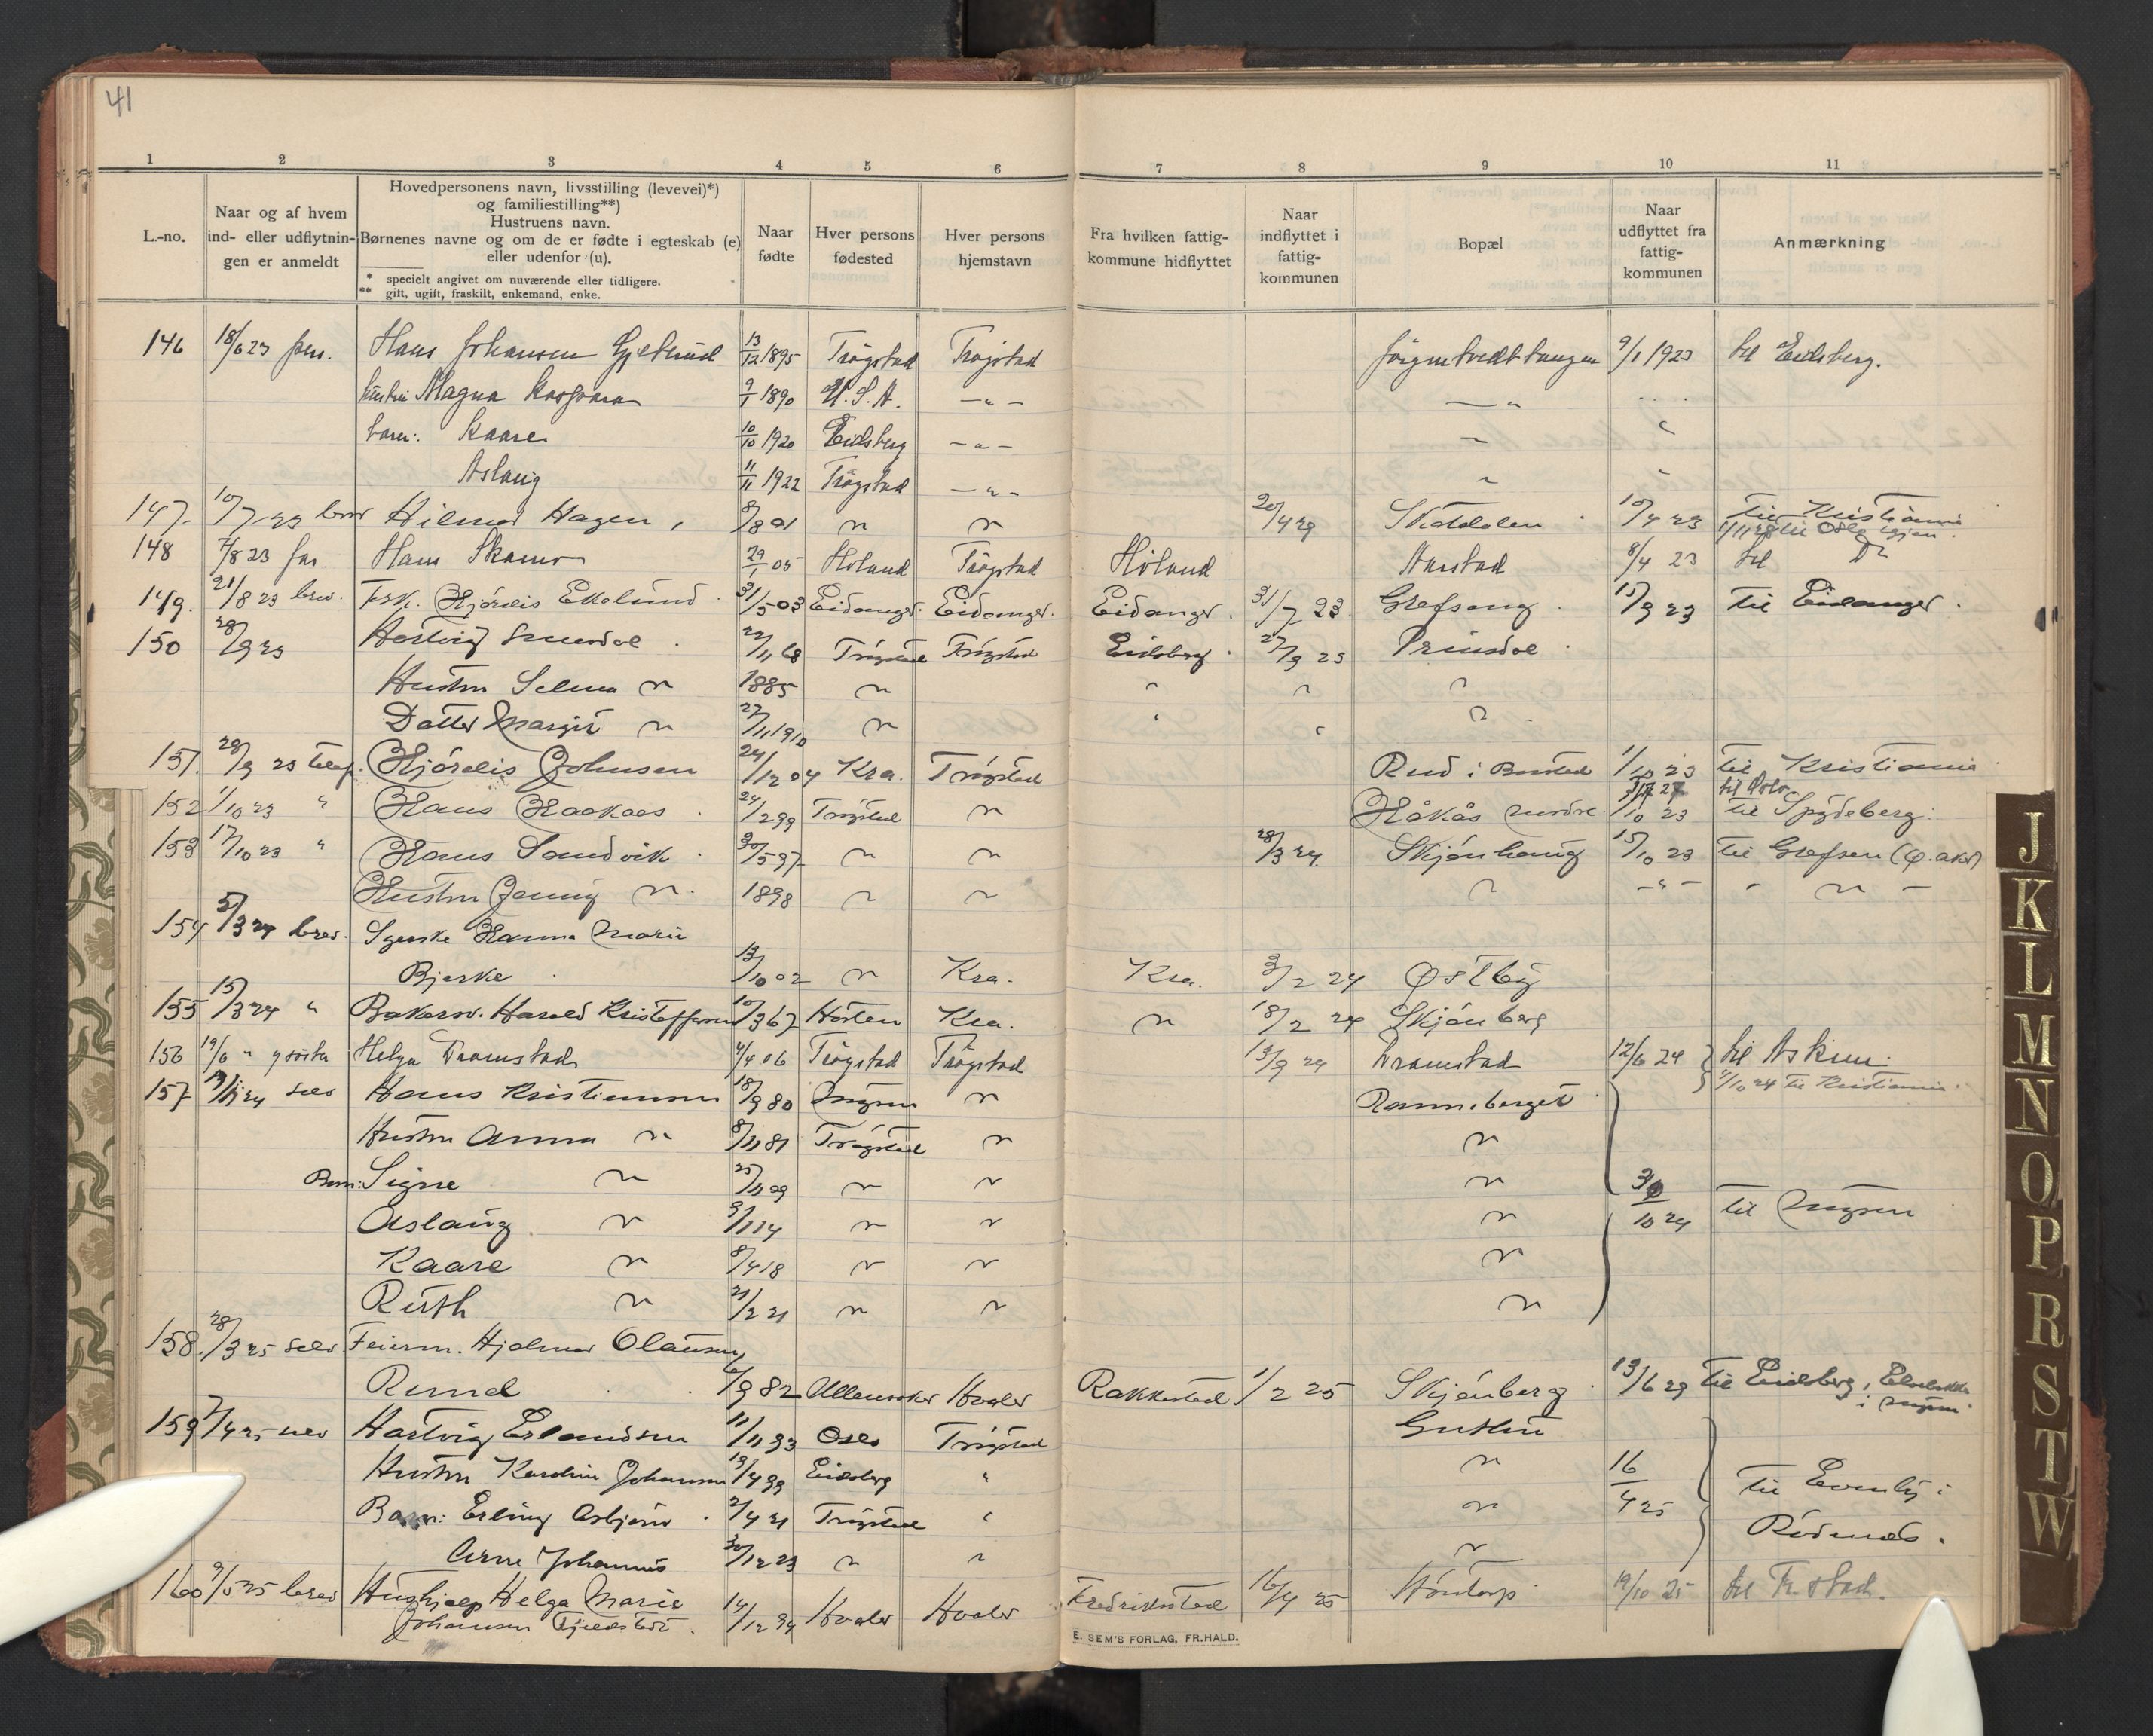 41
1 2 3 4 5 6 7 8 9 10 11
L.-no.
Naar og af hvem
ind- eller udflytnin-
gen er anmeldt
Hovedpersonens navn, livsstilling (levevei)*)
og familiestilling**)
Hustruens navn.
Børnenes navne og om de er fødte i egteskab (e)
eller udenfor (u).
* specielt angivet om nuværende eller tidligere.
** gift, ugift, fraskilt, enkemand, enke.
Naar
fødte
Hver persons
fødested
Hver persons
hjemstavn
Fra hvilken fattig-
kommune hidflyttet
Naar
indflyttet i
fattig-
kommunen
Bopæl
Naar
udflyttet fra
fattig-
kommunen
Anmærkning
146 18/6 23 Hans Johansen 13/12 1895 Trøgstad Trøgstad 9/1 1923 til Eidsberg.
hustru Magna 9/1 1890 U.S.A. -"-
barn: Kaare 10/10 1920 Eidsberg -"-
Aslaug 11/11 1922 Trøgstad -"-
147 10/7 23 brev Hilmar Hagen, 8/8 01 " " 20/4 29 10/4 23 til Kristiania
148 7/8 23 far Hans 29/1 05 Høland Trøgstad Høland 8/4 23 til "
149. 21/8 23 brev. Frk. Hjørdis Eklund. 31/5 03 Eidanger. Eidanger. Eidanger. 31/7 23. 15/9 23 til Eidanger.
150 28/9 23 Hartvig 22/11 68 Trøgstad Trøgstad Eidsberg. 27/9 23
Hustru Selma " 1885 " " " "
Datter Margit " 27/11 1910 " " " "
151. 28/9 23 telef. Hjørdis Johnsen 24/12 04 Kra. Trøgstad Rud i Båstad 1/10 23 til Kristiania
til Oslo
152 1/10 23 " Hans Haakaas. 24/2 99 Trøgstad " Håkås nordre 1/10 23 til Spydeberg.
153 17/10 23 " Hans Sandvik. 30/5 97 " " 28/3 24. Skjønhaug 15/10 23 til Grefsen (Ø. aker)
Hustru Jenny ". 1898 " " " -"- - " -
154 5/3 24 brev. Syerske Hanna Marie
Bjerke. 13/10 02 " Kra. Kra. 3/2 24 Østby
155 15/3 24 " Harald Kristoffersen 10/3 67 Horten Kra. " 18/2 24 Skjønberg
156 19/6 " Helga Dramstad 4/4 06 Trøgstad Trøgstad 13/9 24 Dramstad 12/6 24 til Askim.
4/10 24 til Kristiania.
157 selv Hans Kristiansen 18/9 80 Mysen " Ramneberget
Hustru Anna " 8/11 81 Trøgstad " "
Barn: Signe " 25/11 09 " " "
Aslaug " 9/1 14 " " " 10 24 til Mysen
Kaare " 8/4 18 " " "
Ruth " 21/2 21 " " "
158. 28/3 25 selv Feierm. Hjalmar Olausen
Rund 6/9 82 Ullensaker Hvaler Rakkestad 1/2 25 Skjønberg 13/6 29 til Eidsberg,
i Mysen.
159 7/4 25 selv Hartvig Erlandsen 11/11 93 Oslo Trøgstad
Hustru Karoline Johansen 13/4 99 Eidsberg " " 16
Barn: Erling Asbjørn. 2/4 21 Trøgstad " " 4 25 til i
Arne Johannes 30/12 23 " " " Rødenes.
160 9/5 25 brev Hushjælp Helga Marie 14/12 94 Hvaler Hvaler Fredrikstad 16/4 25 19/10 25 til Fr.stad.
Johansen.
E. SEM'S FORLAG, FR.HALD.
J
K
L
M
N
O
P
R
S
T
W